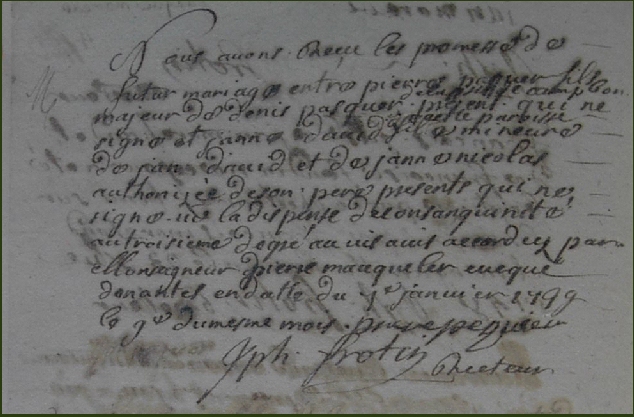 Nous avons Receu les promesse de
futur mariage entre pierre pasquer fils
de la paroisse de campbon
majeur de denis pasquer present qui ne
de cette paroisse
signe et janne david fille mineure
de jan david et de janne nicolas
authorizée de son pere presents qui ne
signe veu la dispense de consanguinité
au troisieme degré accordez par
Monseigneur pierre mauclerc eveque
de nantes en datte du janvier
le 9e du mesme mois
Jph. frotin
Recteur